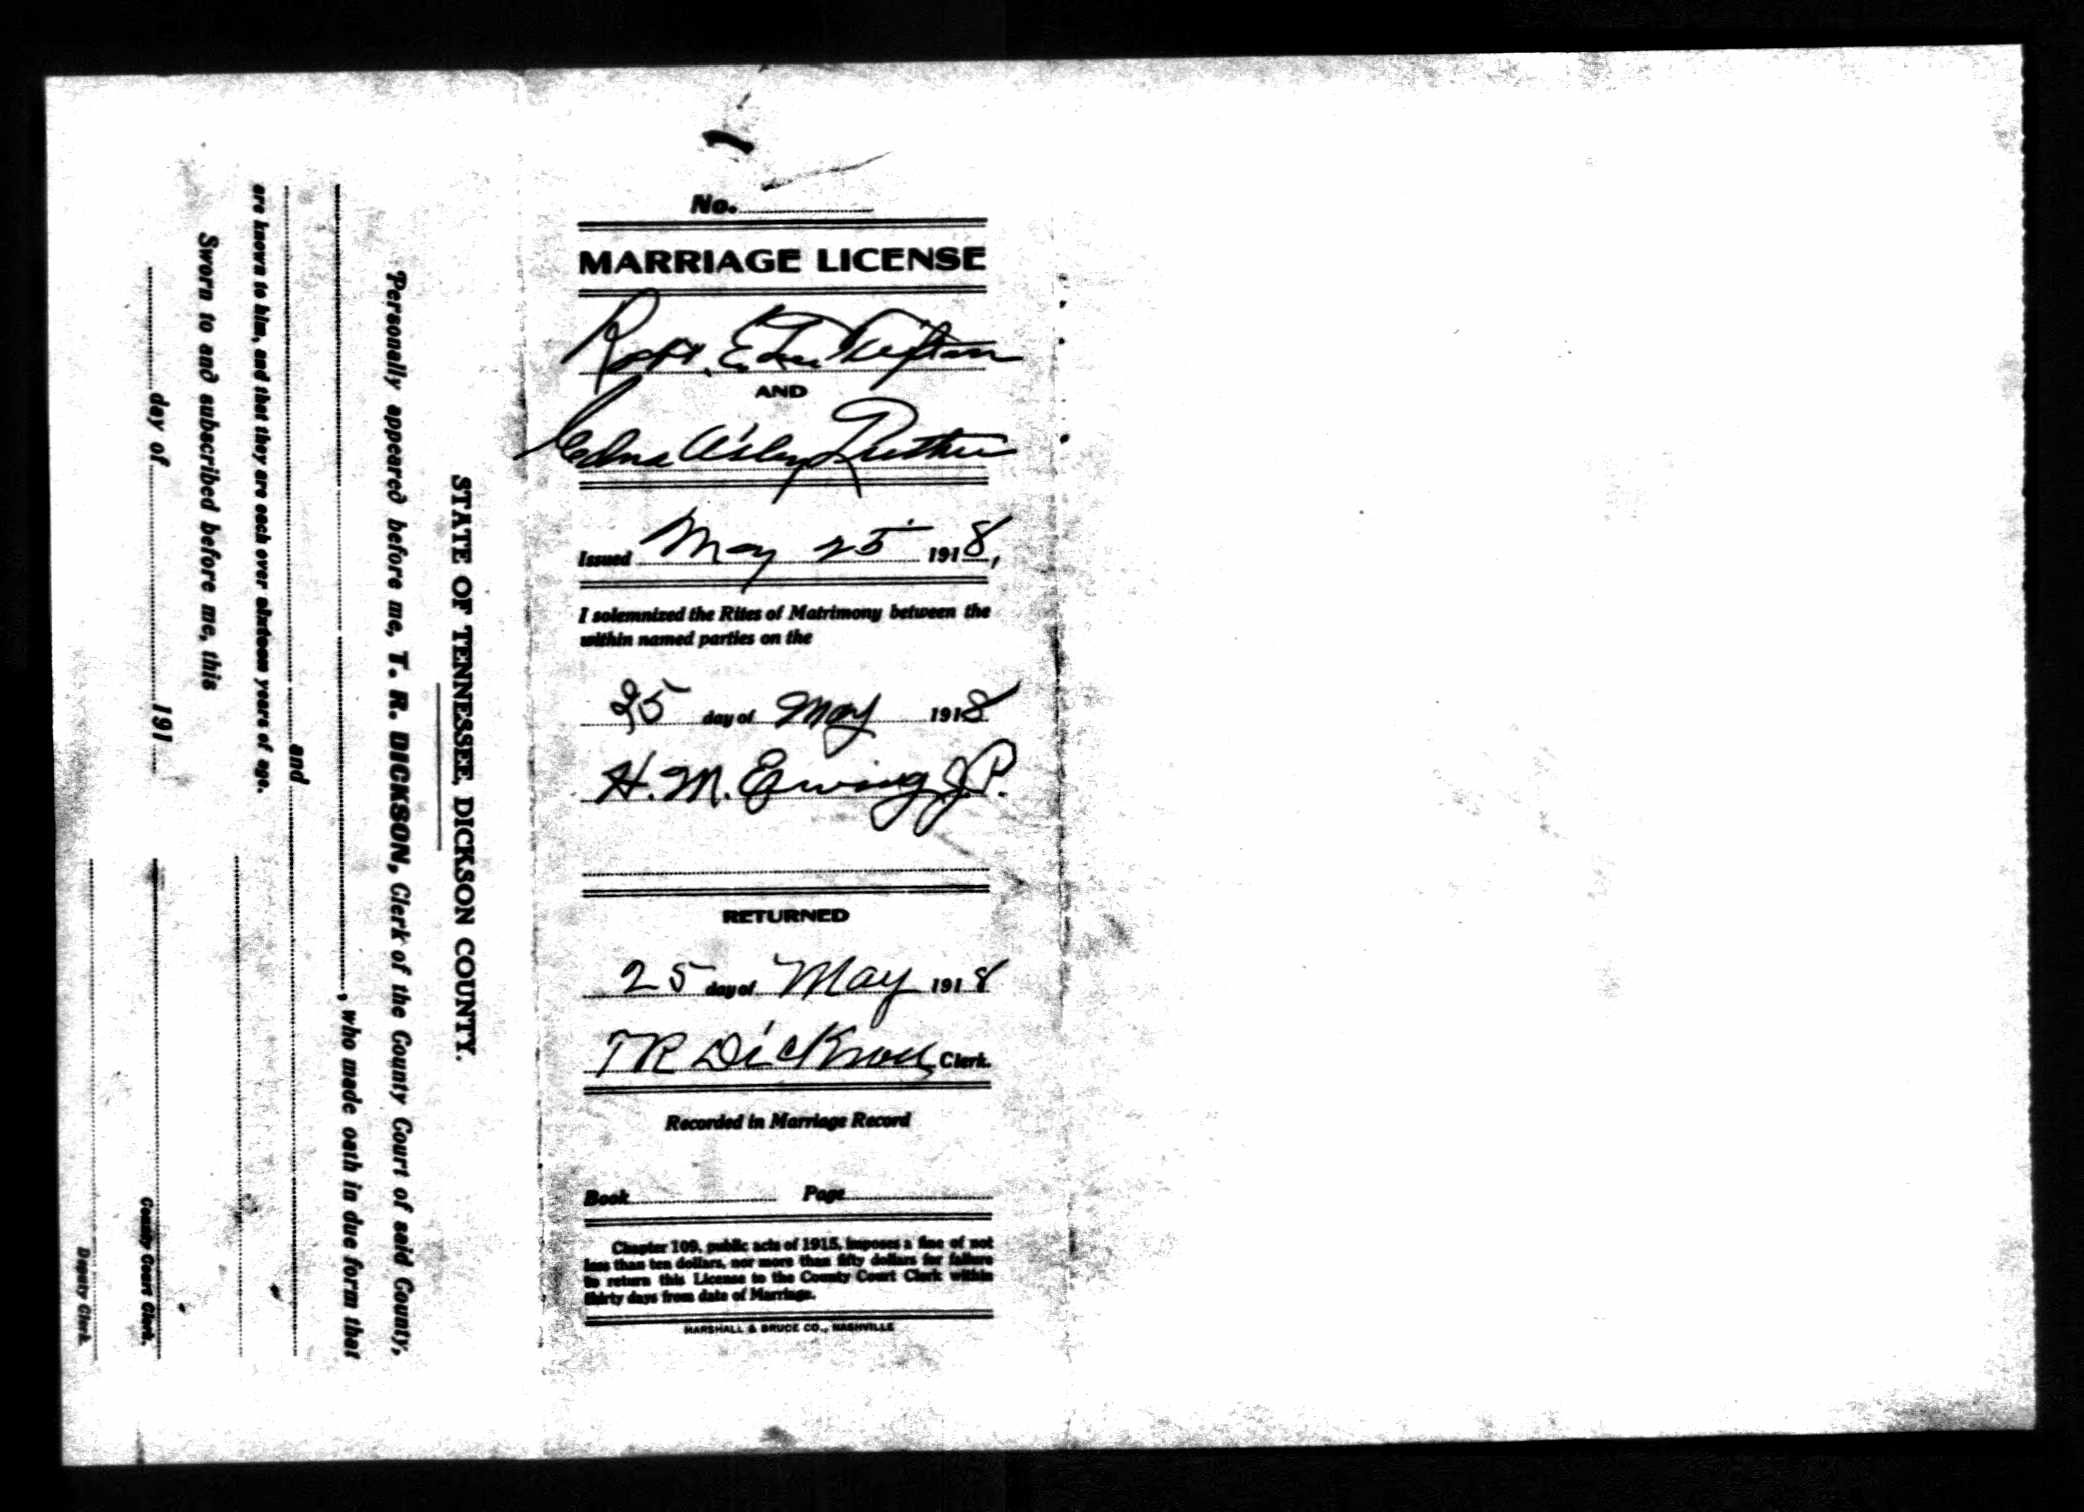 STATE OF TENNESSEE, DICKSON COUNTY.
Personally appeared before me, T. R. DICKSON, Clerk of the County Court of said County,
, who made oath in due form that
and
are known to him, and that they are each over sixteen years of age.
Sworn to and subscribed before me, this
day of 191
County Court Clerk.
Deputy Clerk.
No.
MARRIAGE LICENSE
Robt. E.
AND
Edna
Issued May 25 1918,
I solemnized the Rites of Matrimony between the
within named parties on the
25 day of May 1918
H. M. Ewing J.P.
RETURNED
25 day of May 1918
TR Dickson Clerk.
Recorded in Marriage Record
Book Page
Chapter 109, public acts of 1915, imposes a fine of not
less than ten dollars, nor more than fifty dollars for failure
to return this License to the County Court Clerk within
thirty days from date of Marriage.
MARSHALL & BRUCE CO., NASHVILLE